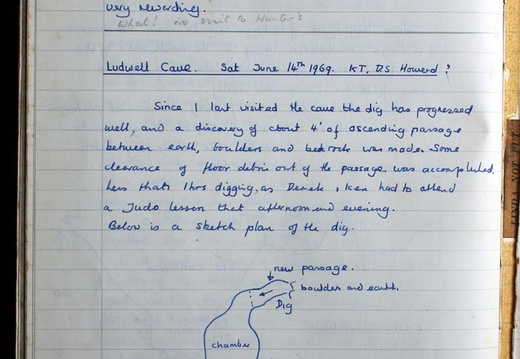 very rewarding.
What! no visit to Hunter's
Ludwell Cave. Sat June 14th 1969. KT, DS Howard ?
Since I last visited the cave the dig has progressed
well, and a discovery of about 4' of ascending passage
between earth, boulders and bedrock was made. Some
clearance of floor debris out of the passage was accomplished.
Less thats 1hrs digging, as Derek , Ken had to attend
a Judo lesson that afternoon and evening.
Below is a sketch plan of the dig.
new passage.
boulder and earth.
Dig
chamber